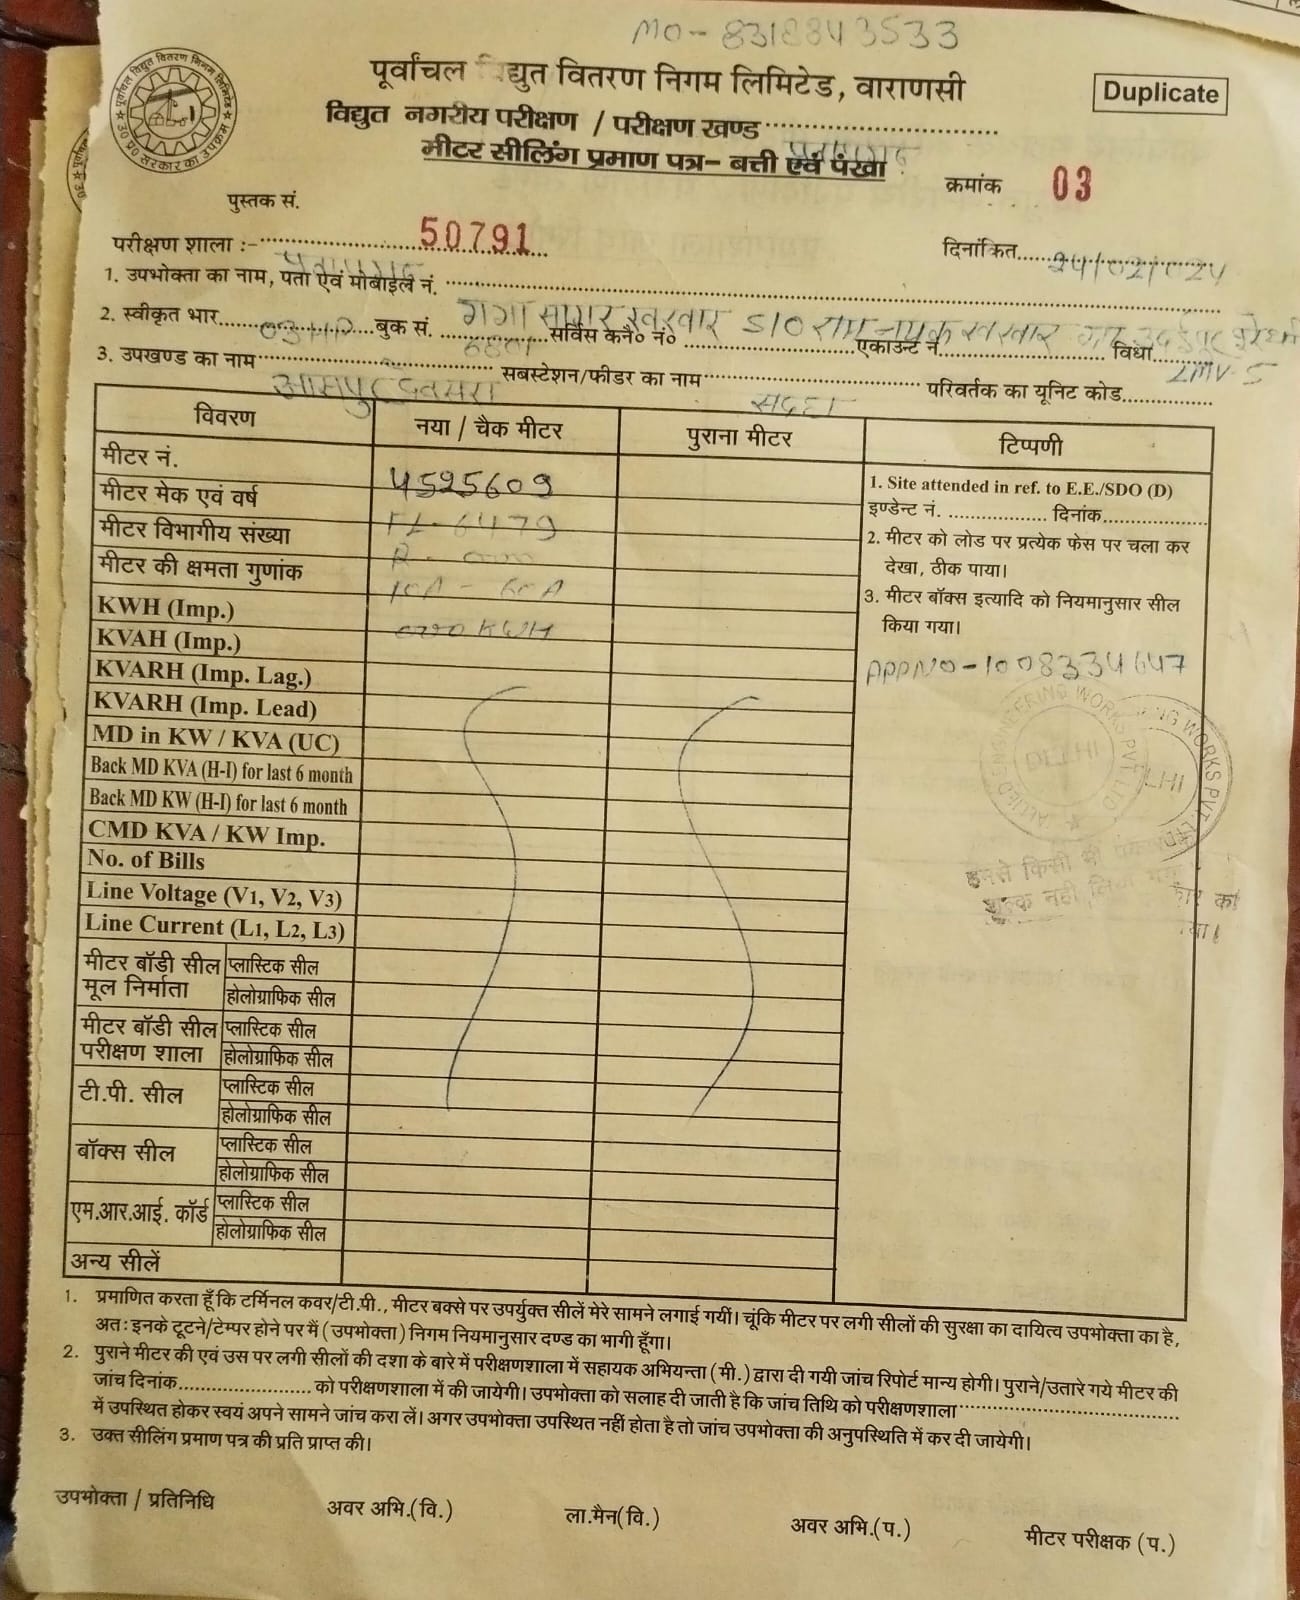 MO-8318843533
पूर्वांचल विद्युत वितरण निगम लिमिटेड, वाराणसी
Duplicate
विद्युत नगरीय परीक्षण / परीक्षण खण्ड
मीटर सीलिंग प्रमाण पत्र– बत्ती एवं पंखा
क्रमांक 03
पुस्तक सं. 50791
परीक्षण शाला :-
दिनांकित 24/02/024
1. उपभोक्ता का नाम, पता एवं मोबाईल नं.
गंगा सागर खरवार S/O राम नायक खरवार
2. स्वीकृत भार 03HP बुक सं. सर्विस कनै० नं० एकाउन्ट नं. विधा LMV-5
3. उपखण्ड का नाम सबस्टेशन/फीडर का नाम परिवर्तक का यूनिट कोड
आसपुर देवसरा
विवरण नया / चैक मीटर पुराना मीटर टिप्पणी
मीटर नं. 4525609
मीटर मेक एवं वर्ष
मीटर विभागीय संख्या
मीटर की क्षमता गुणांक 10A - 60A
KWH (Imp.) 000 KWH
KVAH (Imp.)
KVARH (Imp. Lag.)
KVARH (Imp. Lead)
MD in KW / KVA (UC)
Back MD KVA (H-I) for last 6 month
Back MD KW (H-I) for last 6 month
CMD KVA / KW Imp.
No. of Bills
Line Voltage (V1, V2, V3)
Line Current (L1, L2, L3)
मीटर बॉडी सील मूल निर्माता
प्लास्टिक सील
होलोग्राफिक सील
मीटर बॉडी सील परीक्षण शाला
प्लास्टिक सील
होलोग्राफिक सील
टी.पी. सील
प्लास्टिक सील
होलोग्राफिक सील
बॉक्स सील
प्लास्टिक सील
होलोग्राफिक सील
एम.आर.आई. कॉर्ड
प्लास्टिक सील
होलोग्राफिक सील
अन्य सीलें
1. Site attended in ref. to E.E./SDO (D)
इण्डेन्ट नं. दिनांक
2. मीटर को लोड पर प्रत्येक फेस पर चला कर
देखा, ठीक पाया।
3. मीटर बॉक्स इत्यादि को नियमानुसार सील
किया गया।
APPNO-1008334647
ALLIED ENGINEERING WORKS PVT. LTD.
DELHI
1. प्रमाणित करता हूँ कि टर्मिनल कवर/टी.पी., मीटर बक्से पर उपर्युक्त सीलें मेरे सामने लगाई गयीं। चूंकि मीटर पर लगी सीलों की सुरक्षा का दायित्व उपभोक्ता का है,
अतः इनके टूटने/टेम्पर होने पर मैं (उपभोक्ता) निगम नियमानुसार दण्ड का भागी हूँगा।
2. पुराने मीटर की एवं उस पर लगी सीलों की दशा के बारे में परीक्षणशाला में सहायक अभियन्ता (मी.) द्वारा दी गयी जांच रिपोर्ट मान्य होगी। पुराने/उतारे गये मीटर की
जांच दिनांक को परीक्षणशाला में की जायेगी। उपभोक्ता को सलाह दी जाती है कि जांच तिथि को परीक्षणशाला
में उपस्थित होकर स्वयं अपने सामने जांच करा लें। अगर उपभोक्ता उपस्थित नहीं होता है तो जांच उपभोक्ता की अनुपस्थिति में कर दी जायेगी।
3. उक्त सीलिंग प्रमाण पत्र की प्रति प्राप्त की।
उपभोक्ता / प्रतिनिधि अवर अभि.(वि.) ला.मैन(वि.) अवर अभि.(प.) मीटर परीक्षक (प.)